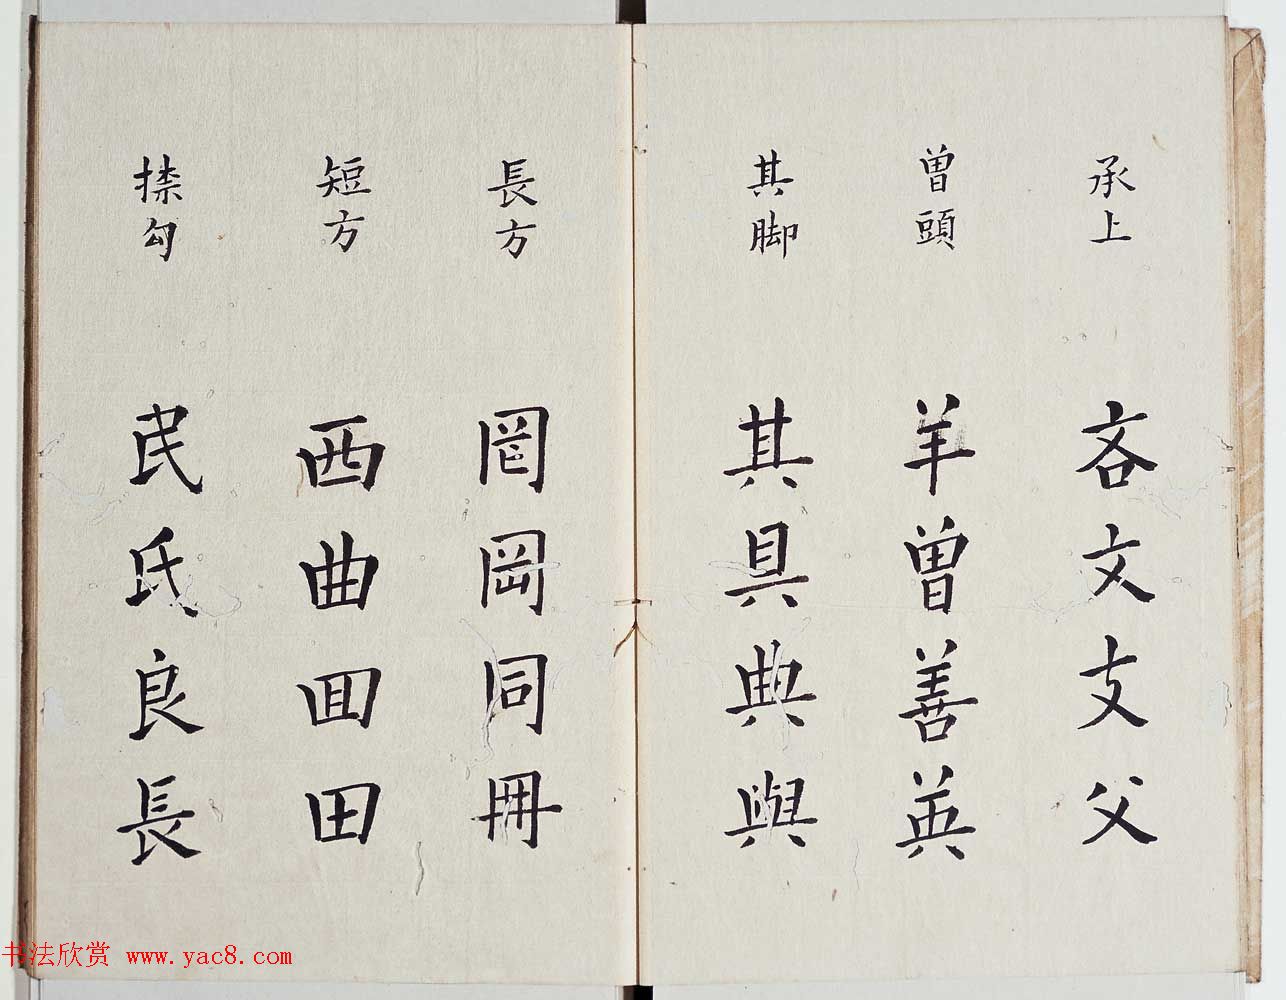 承上 吝文支父
曽頭 羊曽善英
其脚 其具典與
長方 罔岡同冊
短方 西曲囬田
捺勾 民氏良長
书法欣赏 www.yac8.com